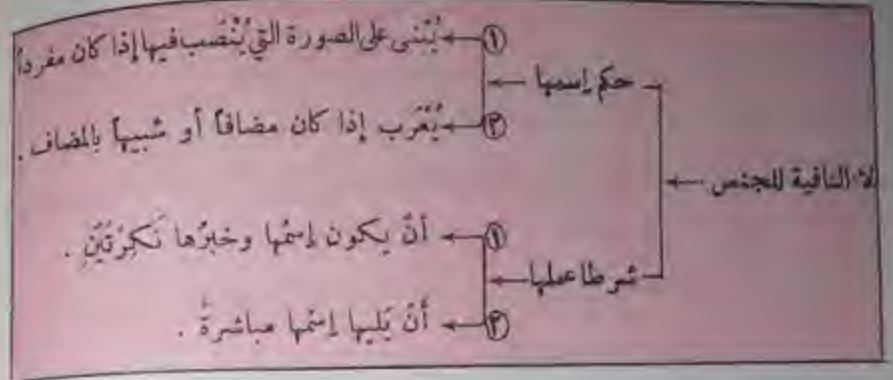 لا النافية للجنس
حكم إسمها
① يُبْنى على الصورة التي يُنْصَب فيها إذا كان مفرداً
② يُعْرَب إذا كان مضافاً أو شبيهاً بالمضاف .
شرطا عملها
① أنْ يكون إسمُها وخبرُها نَكِرَتَيْنِ .
② أنْ يَليها إسمُها مباشرةً .